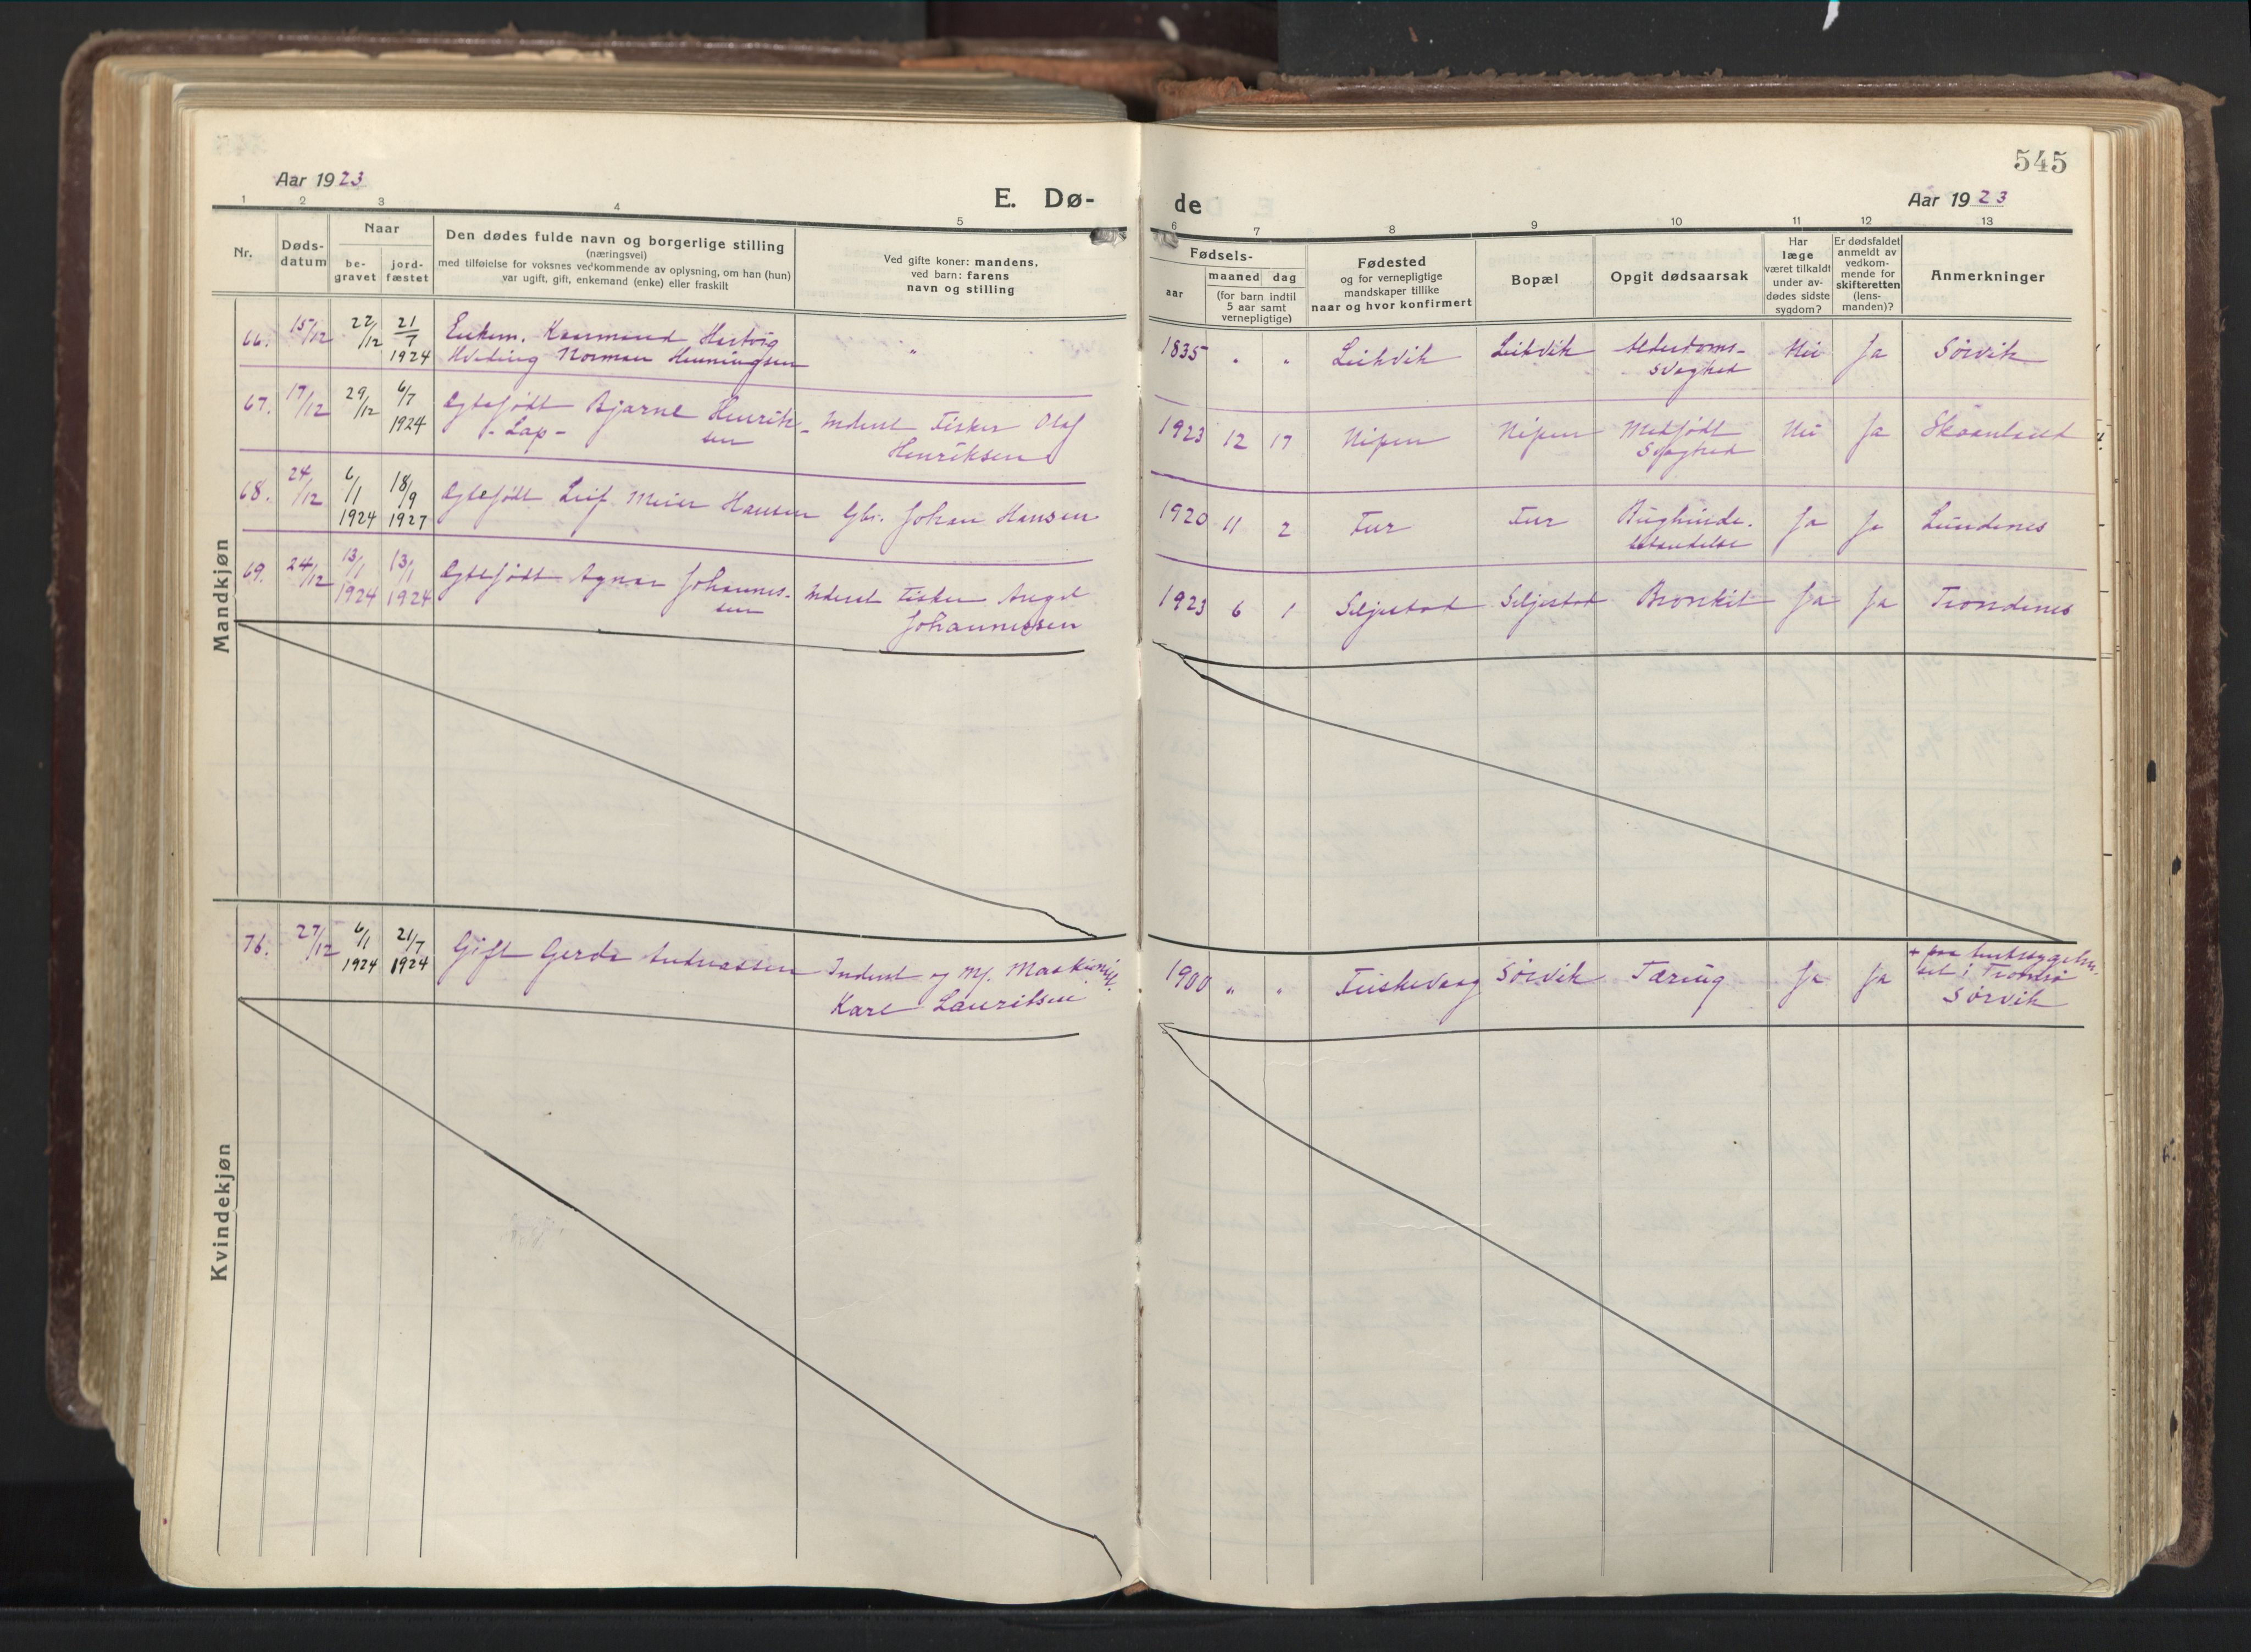 545
Aar 1923
E. Dø-
de
Aar 1923
1 2 3 4 5
6 7 8 9 10 11 12 13
Nr.
Døds-
datum
Naar
be-
gravet
jord-
fæstet
Den dødes fulde navn og borgerlige stilling
(næringsvei)
med tilføielse for voksnes vedkommende av oplysning, om han (hun)
var ugift, gift, enkemand (enke) eller fraskilt
Ved gifte koner: mandens,
ved barn: farens
navn og stilling
Fødsels-
aar
maaned dag
(for barn indtil
5 aar samt
vernepligtige)
Fødested
og for vernepligtige
mandskaper tillike
naar og hvor konfirmert
Bopæl
Opgit dødsaarsak
Har
læge
været tilkaldt
under av-
dødes sidste
sygdom?
Er dødsfaldet
anmeldt av
vedkom-
mende for
skifteretten
(lens-
manden)?
Anmerkninger
Mandkjøn
66. 15/12 22/12 21/7 1924
Enkem. Kaarmand Hartvig
Hveding Norman Henningsen
"
1835 " " Leikvik Leikvik Alderdoms-
svaghed
Nei Ja Sörvik
67. 17/12 29/12 6/7 1924
Egtefödt Bjarne Henrik-
sen
- Lap -
Inderst Fisker Olaf
Henriksen
1923 12 17 Nipen Nipen Medfödt
Svaghed
Nei Ja Skaanland
68. 24/12 6/1 1924 18/9 1927
Egtefödt Leif Meier Hansen
Gbr. Johan Hansen
1920 11 2 Fur Fur Bughinde-
betændelse
Ja Ja Lundenes
69. 24/12 13/1 1924 13/1 1924
Egtefödt Agnar Johannes-
sen
Inderst Fisker Angel
Johannessen
1923 6 1 Seljestad Seljestad Bronkit Ja Ja Trondenes
Kvindekjøn
76. 27/12 6/1 1924 21/7 1924
Gift Gerda Andreassen
Inderst og
Karl Lauritsen
1900 " " Sörvik Tæring Ja Ja
+ paa
i Tromsö
Sörvik